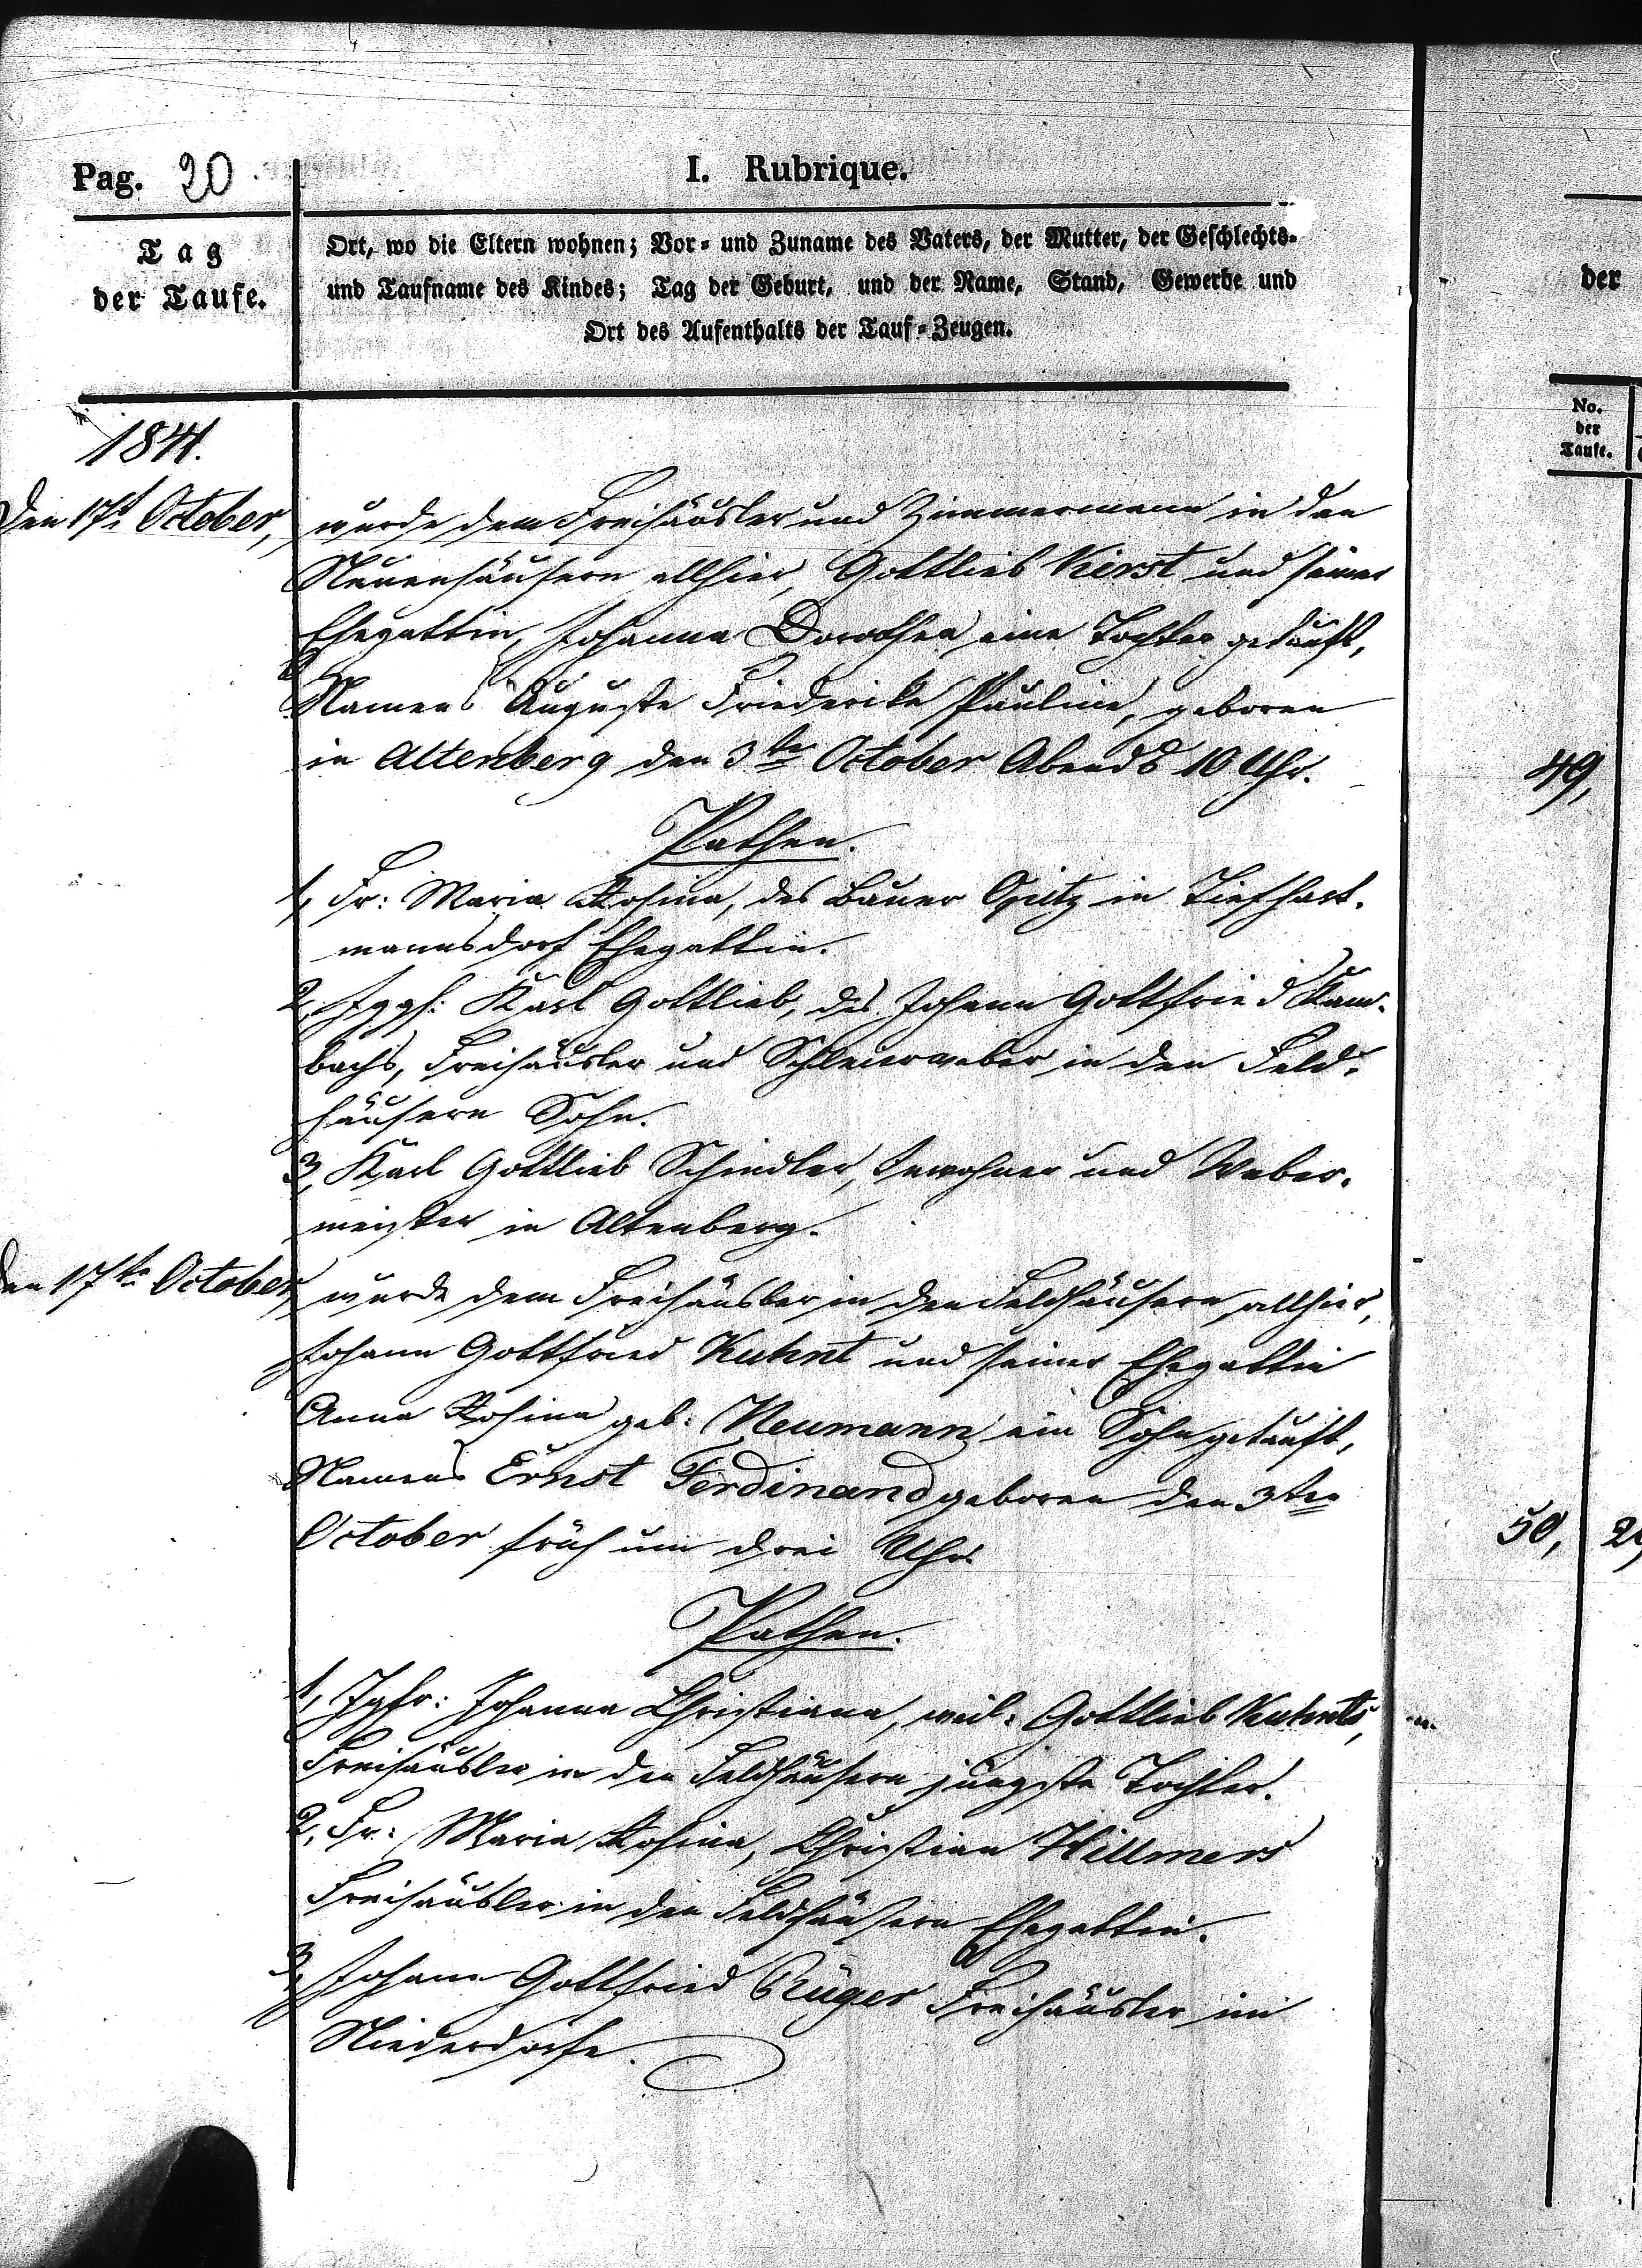 Pag. 20
I. Rubrique.
Tag
der Taufe.
Ort, wo die Eltern wohnen; Vor- und Zuname des Vaters, der Mutter, der Geschlechts-
und Taufname des Kindes; Tag der Geburt, und der Name, Stand, Gewerbe und
Ort des Aufenthalts der Tauf-Zeugen.
der
No.
der
Taufe.
1841.
Den 17t October,
wurde dem Freihäusler und Zimmermann in den
Neuenhäusern allhier, Gottlieb Kirst und seiner
Ehegattin, Johanna Dorothea eine Tochter getauft,
Namens Auguste Friedericke Pauline, geboren
in Altenberg den 3ten October Abends 10 Uhr.
49,
Pathen.
1, Fr: Maria Rosina, des Bauer Opitz in Tiefhart-
mannsdorf Ehegattin.
2, Jggs: Karl Gottlieb, des Johann Gottfried
bachs, Freihäusler und Schleierweber in den Feld-
häusern Sohn.
3, Karl Gottlieb Schindler, Inwohner und Weber-
meister in Altenberg.
Den 17ten October,
wurde dem Freihäusler in den Feldhäusern allhier,
Johann Gottfried Kuhnt und seiner Ehegattin
Anna Rosina geb: Neumann ein Sohn getauft,
Namens Ernst Ferdinand geboren den 3ten
October früh um drei Uhr.
50,
Pathen.
1, Jgfr: Johanna Christiana, weil: Gottlieb Kuhnts,
Freihäusler in den Feldhäusern jüngste Tochter.
2, Fr: Maria Rosina, Christian Hillmers
Freihäusler in den Feldhäusern Ehegattin.
3, Johann Gottfried Rüger Freihäusler im
Niederdorfe.